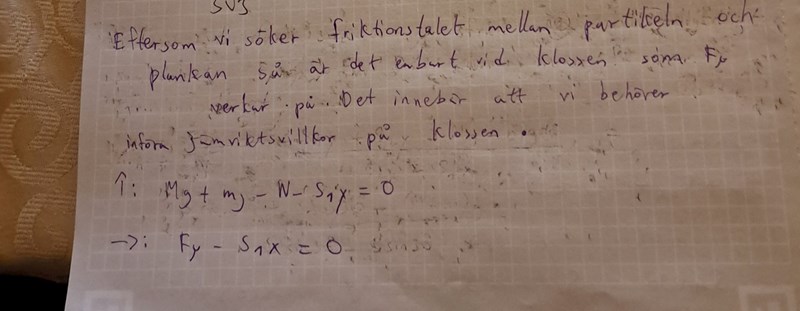 SV3
Eftersom vi söker friktionstalet mellan partikeln och
plankan så är det enbart vid klossen soma Fμ
verkar på. Det innebär att vi behöver
införa jämviktsvillkor på klossen.
↑: Mg + mg - N - S₁y = 0
→: Fμ - S₁x = 0